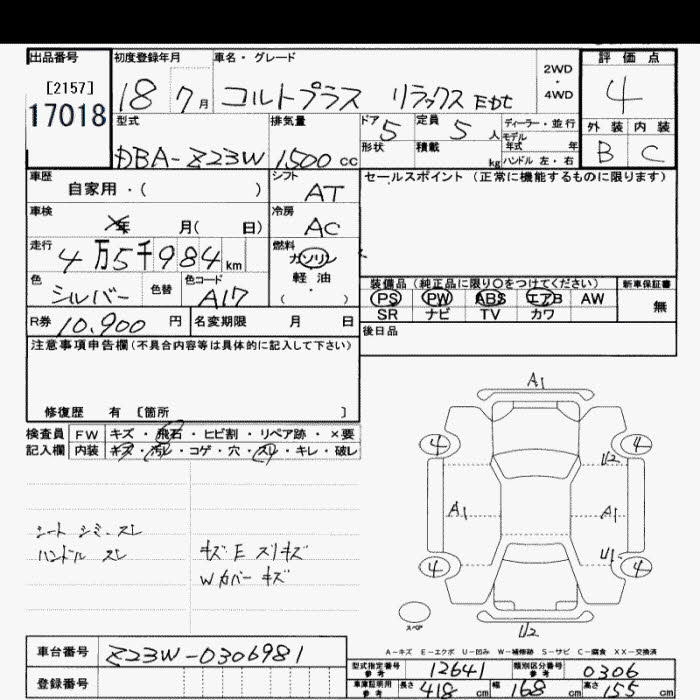 出品番号 初度登録年月 車名・グレード 2WD・4WD 評価点
[2157]
17018 18 7月 コルトプラス リラックス Edt 4
型式 排気量 ドア 5 定員 5 人 ディーラー・並行 外装 内装
DBA-Z23W 1,500 cc 形状 積載 kg モデル年式 年 ハンドル 左・右 B C
車歴 自家用・( ) シフト AT セールスポイント (正常に機能するものに限ります)
車検 年 月( 日) 冷房 AC
走行 4万5千984km 燃料 ガソリン
軽油
( ・ )
色 シルバー 色替 色コード A17
装備品 (純正品に限り○をつけてください) 新車保証書
PS PW ABS エアB AW 無
SR ナビ TV カワ
R券 10,900 円 名変期限 月 日 後日品
注意事項申告欄 (不具合内容等は具体的に記入して下さい)
修復歴 有 [箇所 ]
検査員 FW キズ・飛石・ヒビ割・リペア跡・×要
記入欄 内装 キズ・汚レ・コゲ・穴・スレ・キレ・破レ
シート シミ、スレ
ハンドル スレ
キズ E スリキズ
W カバー キズ
A1
4 4
U2
A1 A1
U1
4 4
スペア
U2
A-キズ E-エクボ U-凹み W-補修跡 S-サビ C-腐食 XX-交換済
車台番号 Z23W-0306981
登録番号
型式指定番号 参考 12641 類別区分番号 参考 0306
車庫証明用 参考 長さ 418 cm 幅 168 cm 高さ 155 cm